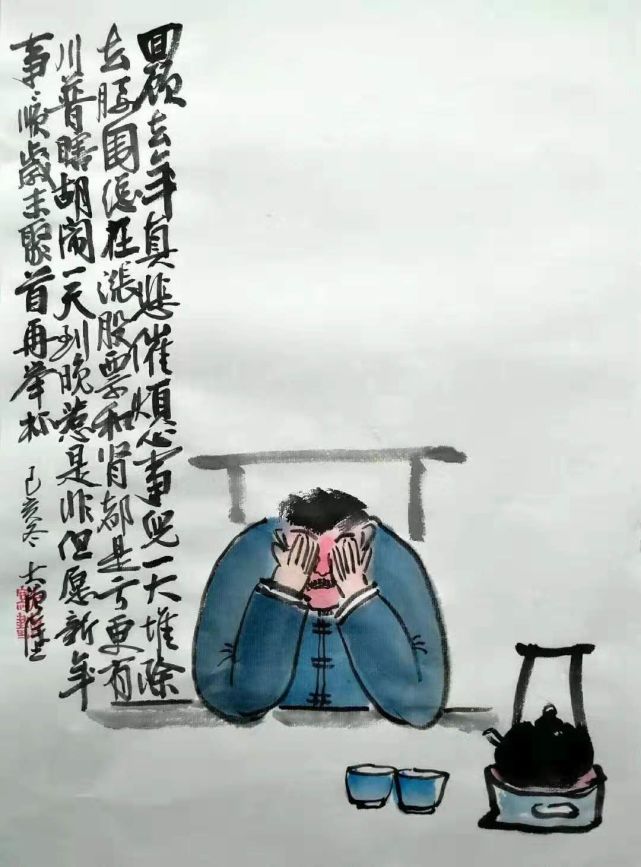 回顾去年真悲催烦心事儿一大堆除
去腰围总在涨股票和肾都是亏更有
川普瞎胡闹一天到晚惹是非但愿新年
事事顺岁末聚首再举杯
己亥冬